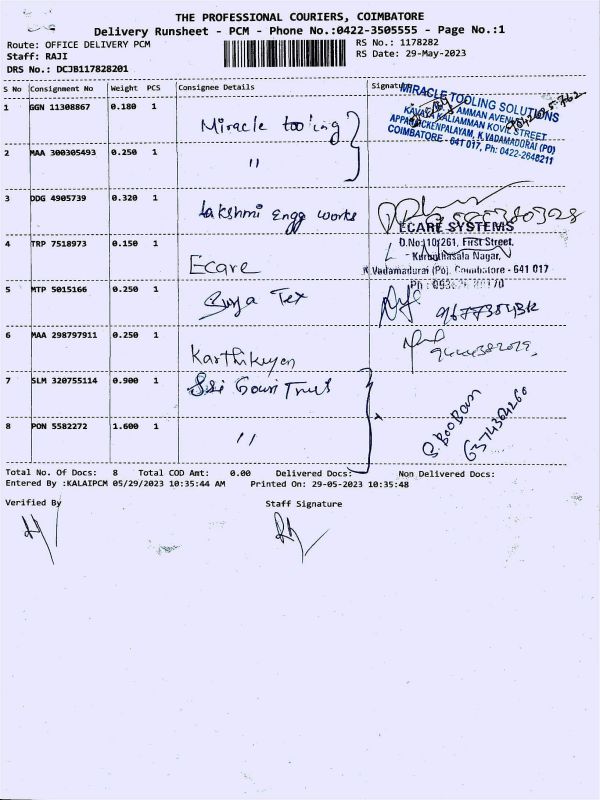 THE PROFESSIONAL COURIERS, COIMBATORE
Delivery Runsheet - PCM - Phone No.:0422-3505555 - Page No.:1
Route: OFFICE DELIVERY PCM
RS No.: 1178282
Staff: RAJI
RS Date: 29-May-2023
DRS No.: DCJB117828201
S No Consignment No Weight PCS Consignee Details Signature
1 GGN 11308867 0.180 1 Miracle tooling
MIRACLE TOOLING SOLUTIONS
AMMAN AVENUE
KALIAMMAN KOVIL STREET
K.VADAMADURAI (PO)
COIMBATORE - 641 017, Ph: 0422-2648211
2 MAA 300305493 0.250 1 "
3 DDG 4905739 0.320 1 Lakshmi Engg works
4 TRP 7518973 0.150 1 Ecare
ECARE SYSTEMS
D.No:110/261, First Street,
Nagar,
K.Vadamadurai (Po), Coimbatore - 641 017
5 MTP 5015166 0.250 1 Surya Tex
6 MAA 298797911 0.250 1 Karthikeyan
7 SLM 320755114 0.900 1 Sri Gowri Trust
8 PON 5582272 1.600 1 "
6374364260
Total No. Of Docs: 8 Total COD Amt: 0.00 Delivered Docs: Non Delivered Docs:
Entered By :KALAIPCM 05/29/2023 10:35:44 AM Printed On: 29-05-2023 10:35:48
Verified By Staff Signature